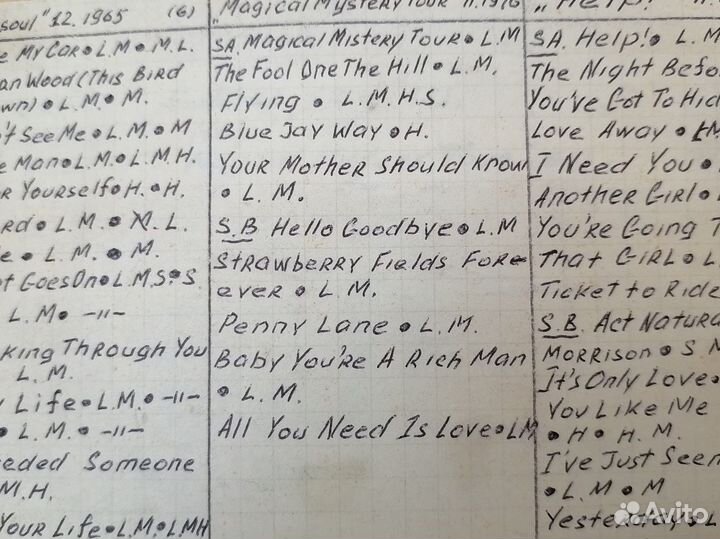 soul" 12.1965 (6)
My Car • L.M • M.L.
Wood (This Bird
• L.M. • M.
See Me • L.M. • M
Man • L.M. • L.M.H.
Yourself • H. • H.
• L.M. • M. L.
• L.M. • M.
Goes On • L.M.S. • S.
L.M • -11-
Through You
L.M.
Life • L.M. • -11-
• L.M. • -11-
Someone
M.H.
Your Life • L.M. • LMH
"Magical Mystery Tour"
SA. Magical Mistery Tour • L.M
The Fool One The Hill • L.M.
Flying • L.M.H.S.
Blue Jay Way • H.
Your Mother Should Know
• L.M.
S.B Hello Goodbye • L.M
Strawberry Fields For-
ever • L.M.
Penny Lane • L.M.
Baby You're A Rich Man
• L.M.
All You Need Is Love • LM
"Help!"
SA. Help! • L.M
The Night
You've Got To
Love Away • LM
I Need You •
Another Girl •
You're Going
That Girl • L
Ticket to Ride
S.B. Act
Morrison • S.M
It's Only Love •
You Like Me
• H • H.M.
I've Just Seen
• L.M • M
Yesterday
Avito